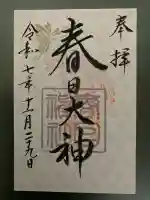 奉拝
春日大神
令和七年十一月二十九日